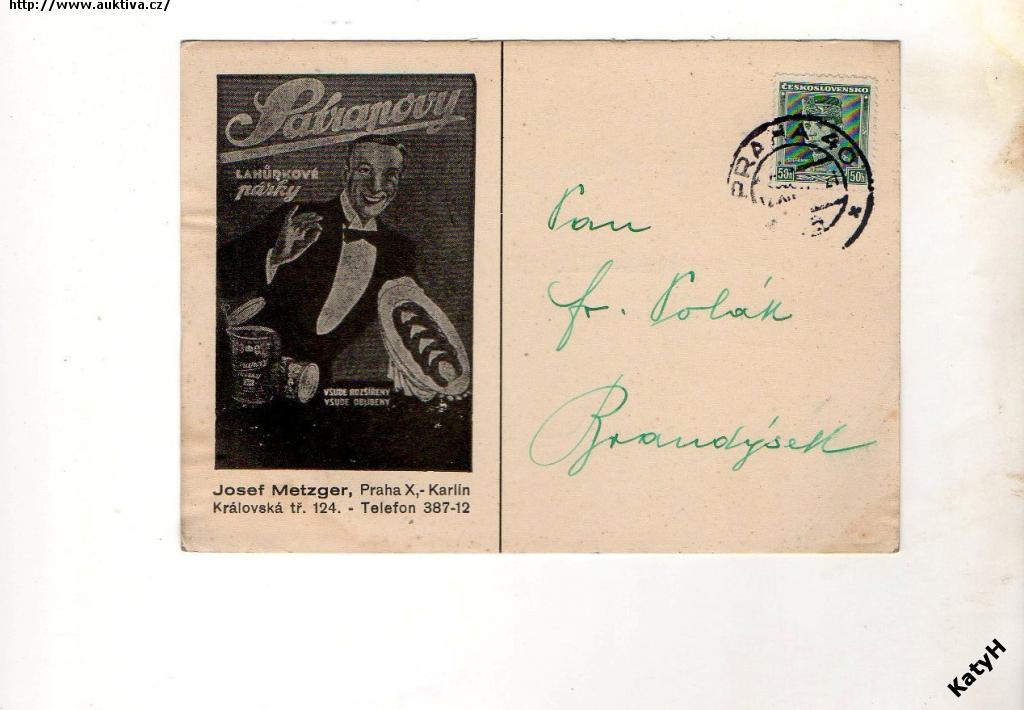 http://www.auktiva.cz/
Satrapovy
LAHŮDKOVÉ
párky
VŠUDE ROZŠÍŘENY
VŠUDE OBLÍBENY
Josef Metzger, Praha X,- Karlín
Královská tř. 124. - Telefon 387-12
ČESKOSLOVENSKO
50h 50h
PRAHA 40
Pan
fr. Polák
Brandýsek
KatyH